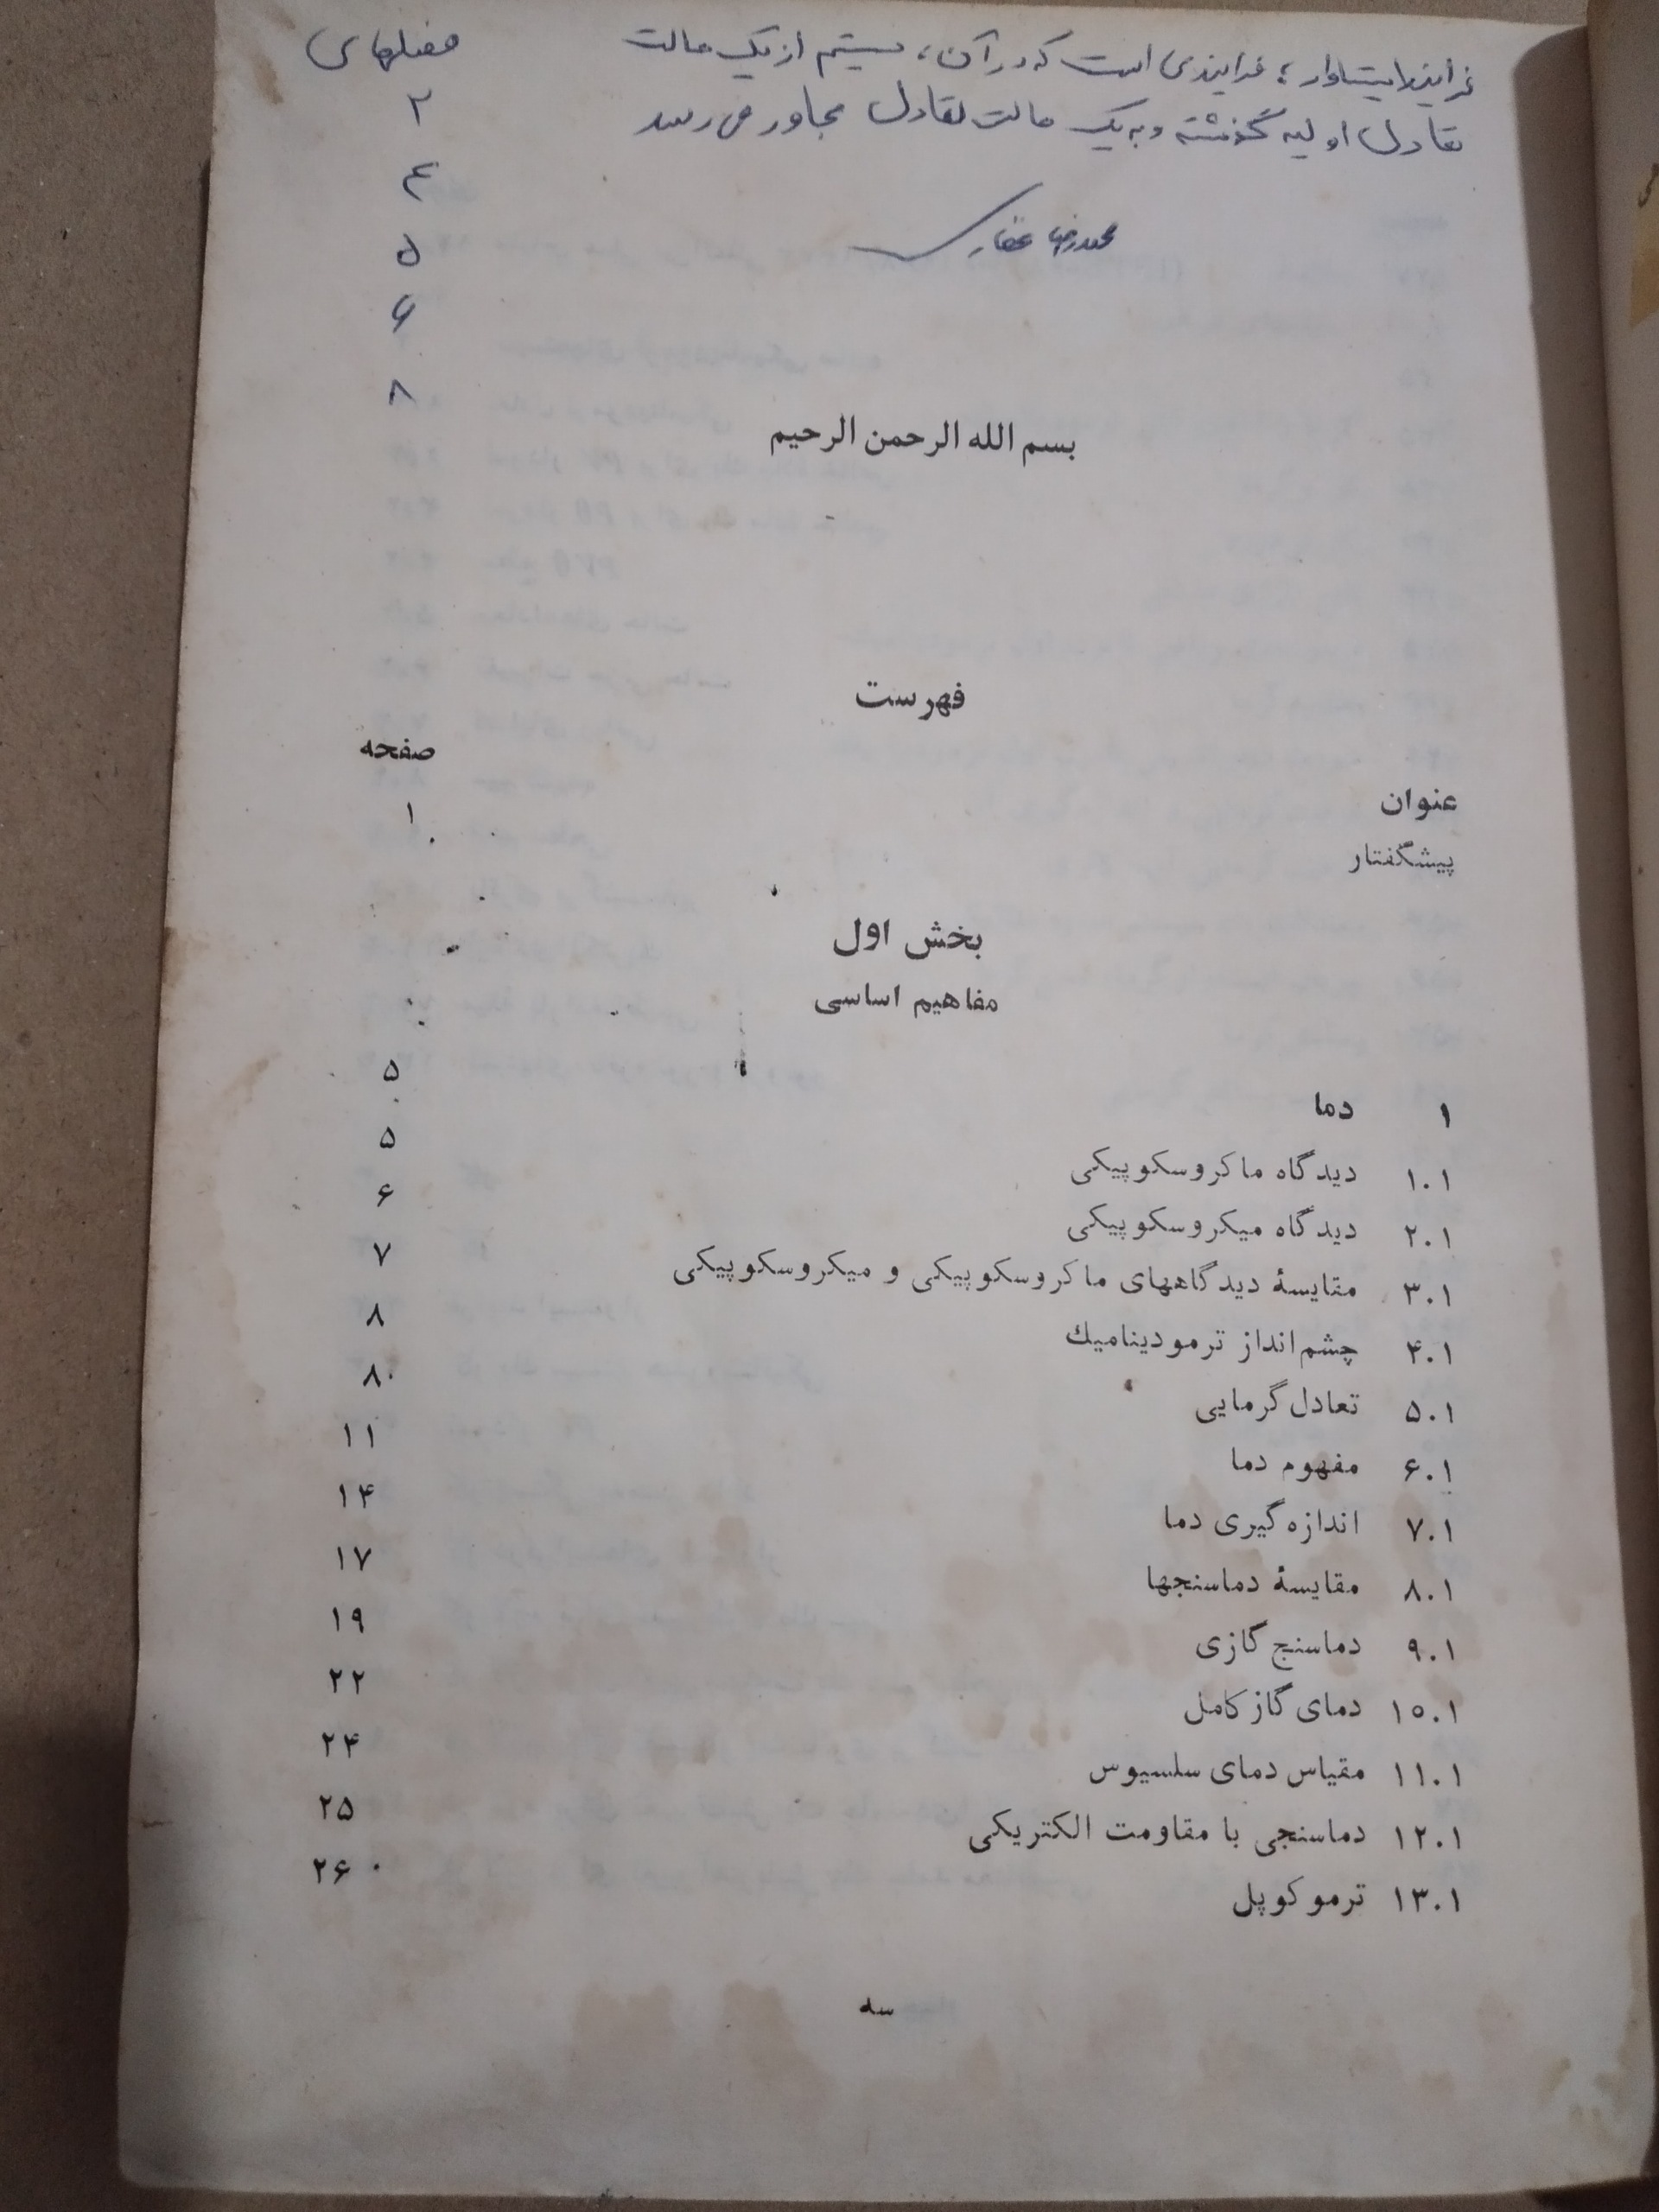 فرایند ایستاوار؛ فرایندی است که در آن، سیستم از یک حالت
تعادل اولیه گذشته و به یک حالت تعادل مجاور می رسد
محمدرضا غفاری
فصلهای
۲
۴
۵
۶
۸
بسم الله الرحمن الرحیم
فهرست
عنوان صفحه
پیشگفتار ۱
بخش اول
مفاهیم اساسی
۱ دما ۵
۱.۱ دیدگاه ماکروسکوپیکی ۵
۲.۱ دیدگاه میکروسکوپیکی ۶
۳.۱ مقایسهٔ دیدگاههای ماکروسکوپیکی و میکروسکوپیکی ۷
۴.۱ چشم‌انداز ترمودینامیك ۸
۵.۱ تعادل گرمایی ۸
۶.۱ مفهوم دما ۱۱
۷.۱ اندازه‌گیری دما ۱۴
۸.۱ مقایسهٔ دماسنجها ۱۷
۹.۱ دماسنج گازی ۱۹
۱۰.۱ دمای گاز کامل ۲۲
۱۱.۱ مقیاس دمای سلسیوس ۲۴
۱۲.۱ دماسنجی با مقاومت الکتریکی ۲۵
۱۳.۱ ترموکوپل ۲۶
سه